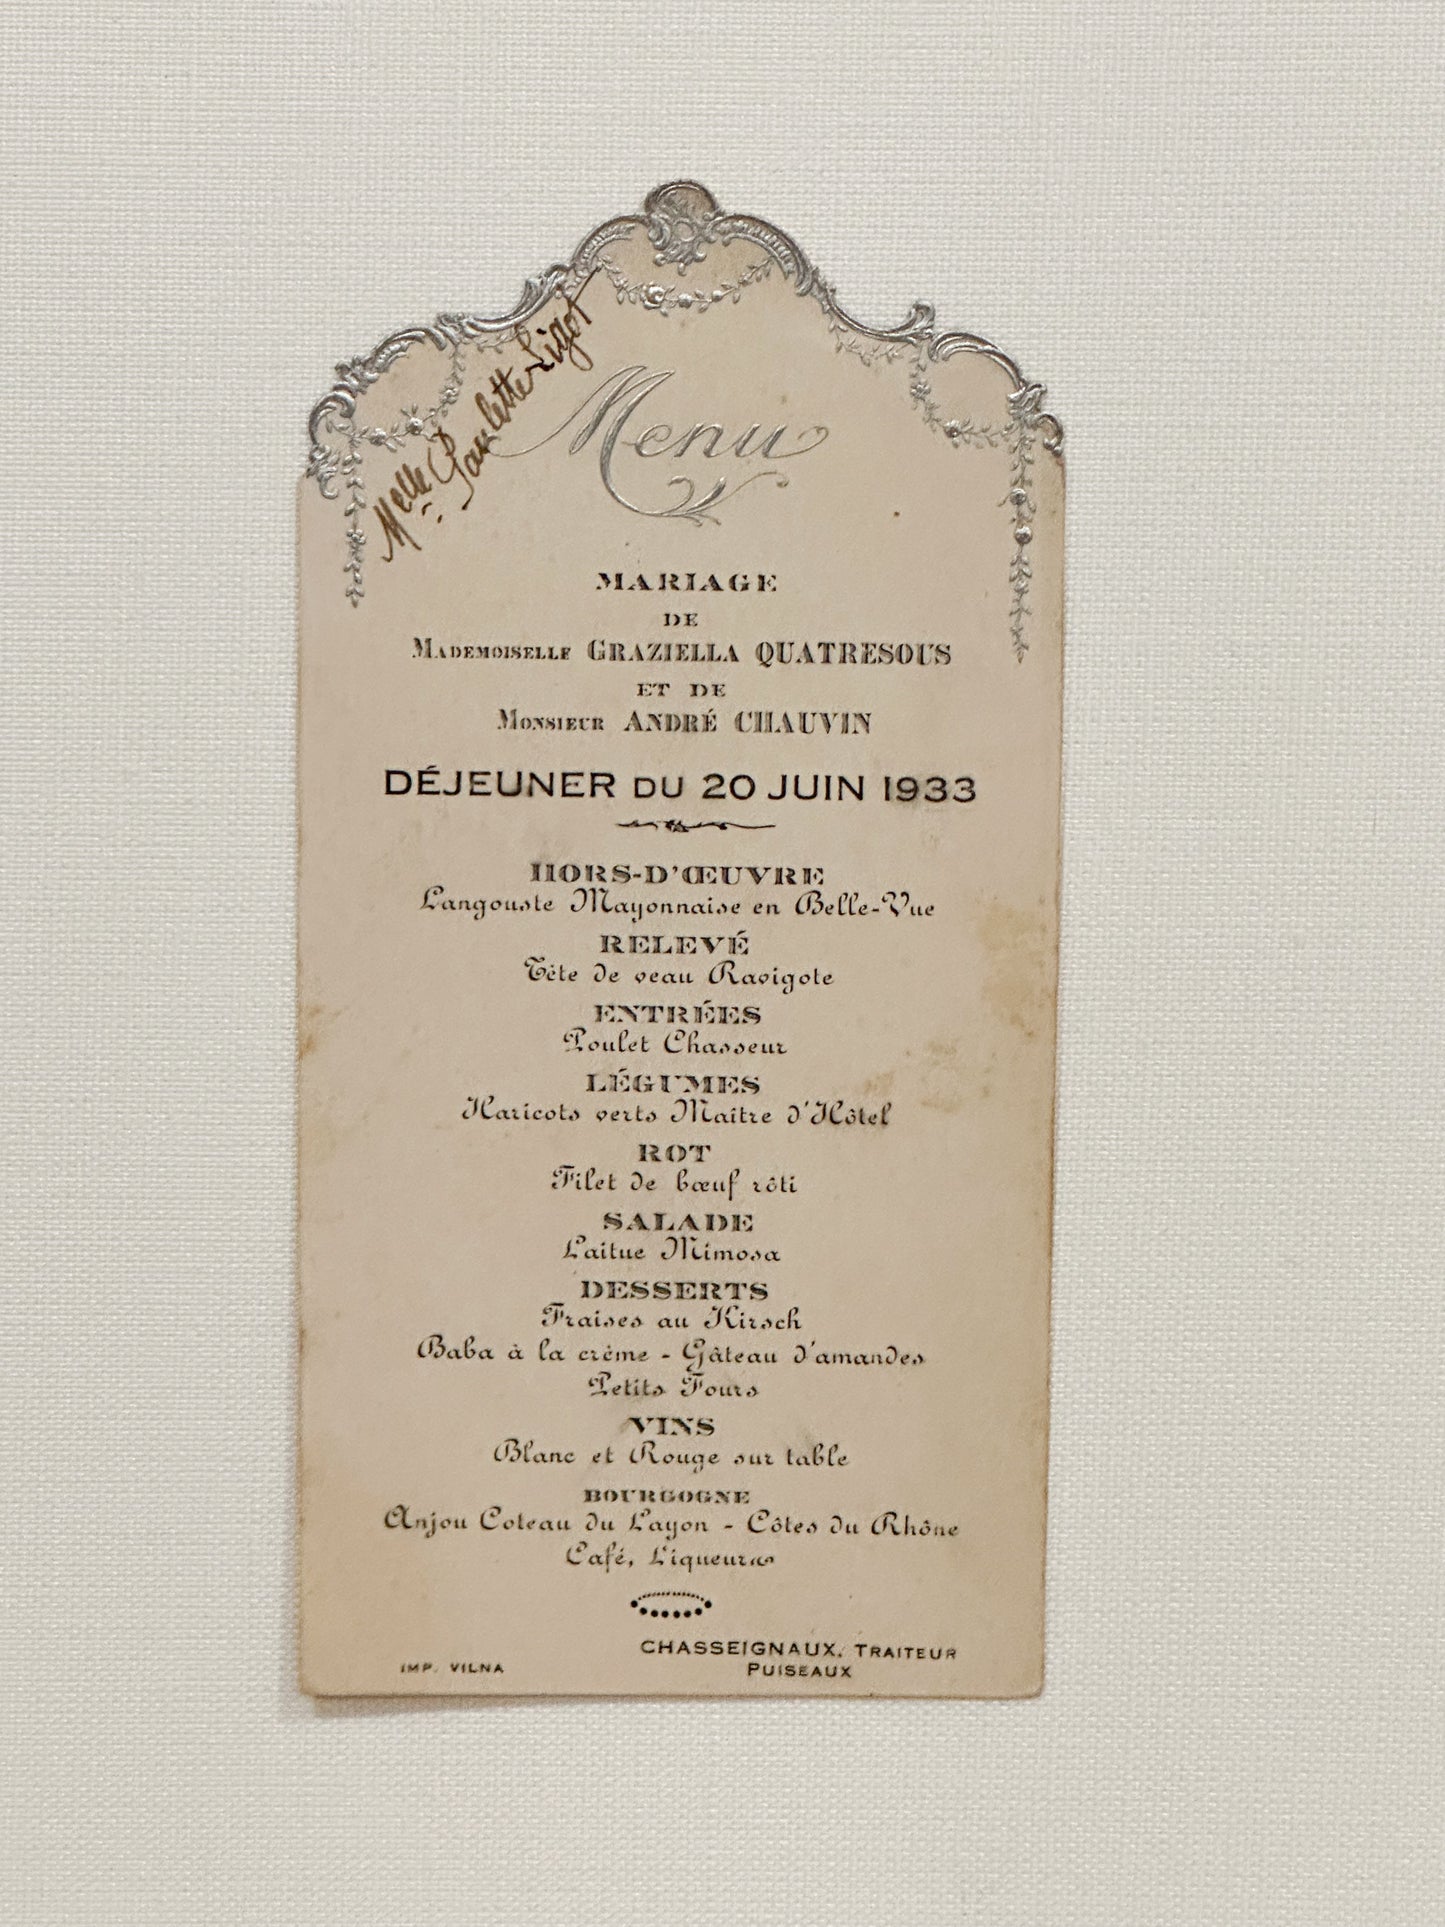 Melle Paulette Ligot
Menu
MARIAGE
DE
MADEMOISELLE GRAZIELLA QUATRESOUS
ET DE
MONSIEUR ANDRÉ CHAUVIN
DÉJEUNER DU 20 JUIN 1933
HORS-D'ŒUVRE
Langouste Mayonnaise en Belle-Vue
RELEVÉ
Tête de veau Ravigote
ENTRÉES
Poulet Chasseur
LÉGUMES
Haricots verts Maître d'Hôtel
ROT
Filet de bœuf rôti
SALADE
Laitue Mimosa
DESSERTS
Fraises au Kirsch
Baba à la crème - Gâteau d'amandes
Petits Fours
VINS
Blanc et Rouge sur table
BOURGOGNE
Anjou Coteau du Layon - Côtes du Rhône
Café, Liqueurs
CHASSEIGNAUX, TRAITEUR
IMP. VILNA PUISEAUX